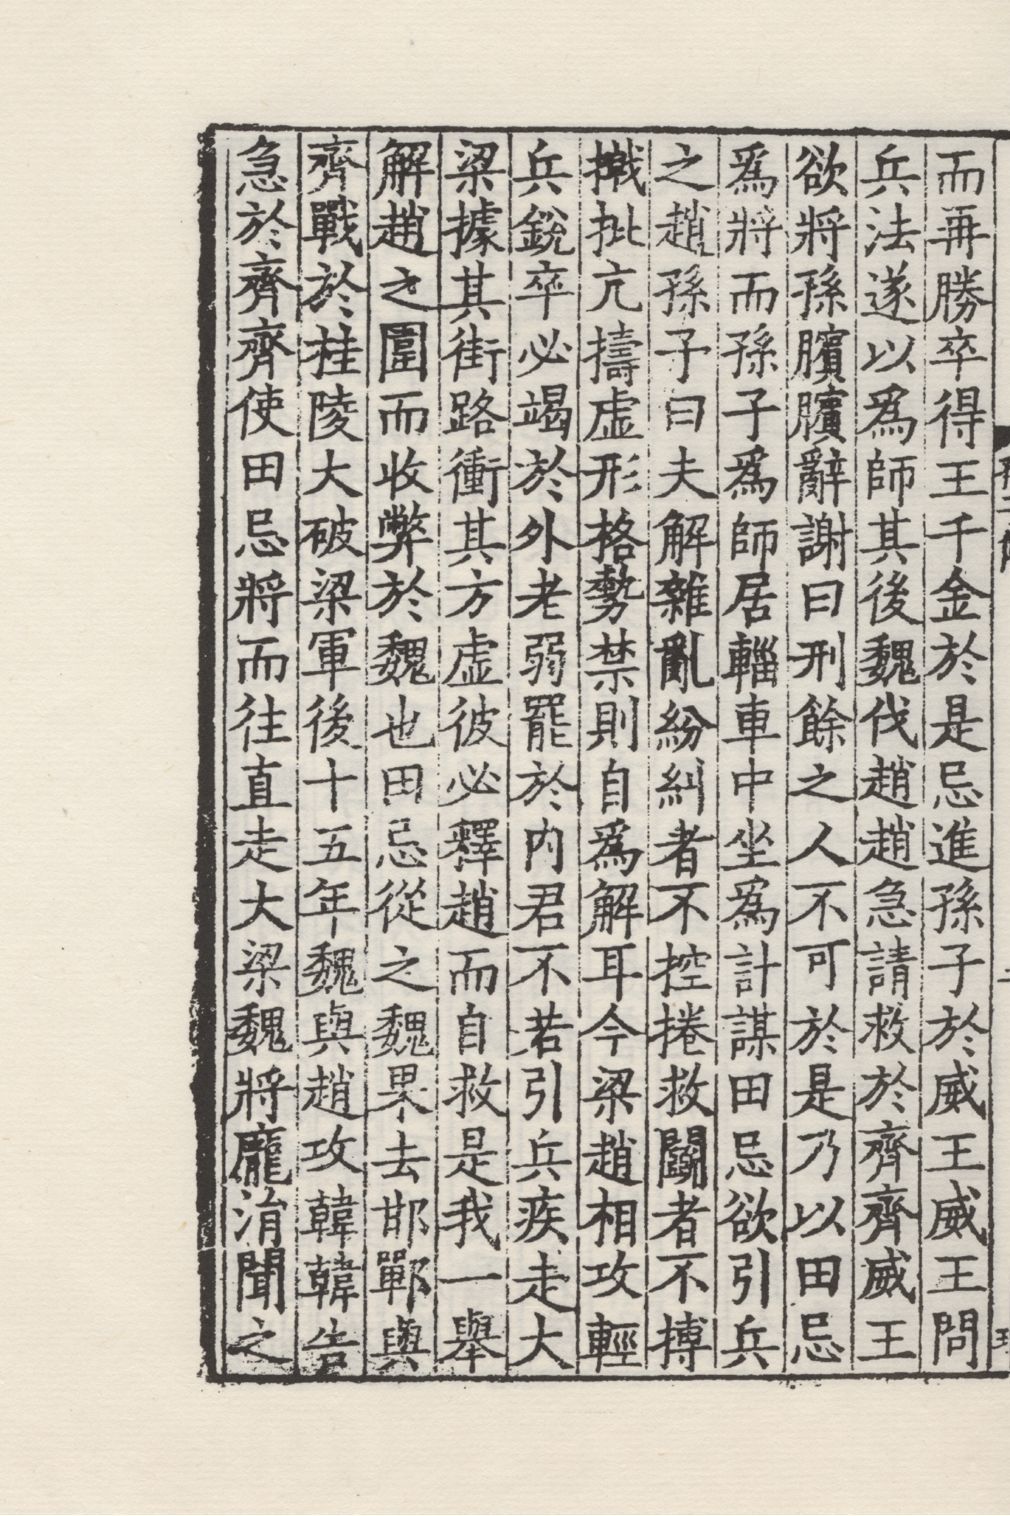 而再勝卒得王千金於是忌進孫子於威王威王問
兵法遂以爲師其後魏伐趙趙急請救於齊齊威王
欲將孫臏臏辭謝曰刑餘之人不可於是乃以田忌
爲將而孫子爲師居輜車中坐爲計謀田忌欲引兵
之趙孫子曰夫解雜亂紛糾者不控捲救鬭者不搏
撠批亢擣虛形格勢禁則自爲解耳今梁趙相攻輕
兵銳卒必竭於外老弱罷於內君不若引兵疾走大
梁據其街路衝其方虛彼必釋趙而自救是我一舉
解趙之圍而收弊於魏也田忌從之魏果去邯鄲與
齊戰於桂陵大破梁軍後十五年魏與趙攻韓韓告
急於齊齊使田忌將而往直走大梁魏將龐涓聞之